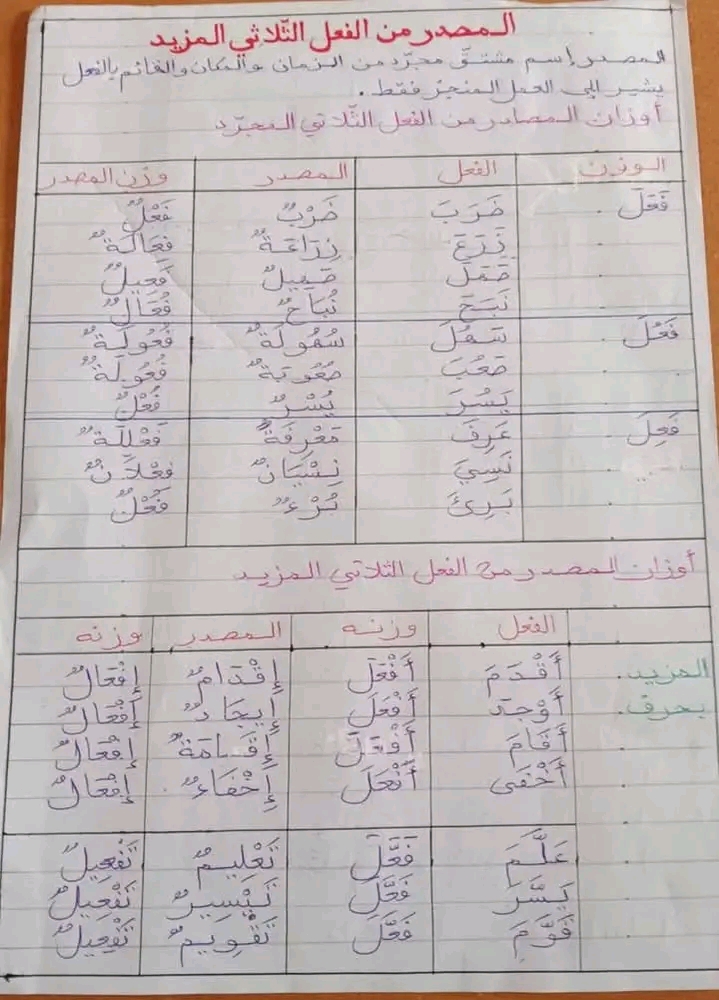 المصدر من الفعل الثّلاثي المزيد
المصدر إسم مشتقّ مجرّد من الزمان والمكان والقائم بالفعل
يشير إلى العمل المنجز فقط.
أوزان المصادر من الفعل الثّلاثي المجرّد
الوزن الفعل المصدر وزن المصدر
فَعَلَ ضَرَبَ ضَرْبٌ فَعْلٌ
زَرَعَ زِرَاعَةٌ فِعَالَةٌ
صَهَلَ صَهِيلٌ فَعِيلٌ
نَبَحَ نُبَاحٌ فُعَالٌ
فَعُلَ سَهُلَ سُهُولَةٌ فُعُولَةٌ
صَعُبَ صُعُوبَةٌ فُعُولَةٌ
يَسُرَ يُسْرٌ فُعْلٌ
فَعِلَ عَرِفَ مَعْرِفَةٌ فَعْلِلَةٌ
نَسِيَ نِسْيَانٌ فِعْلَانٌ
بَرِئَ بُرْءٌ فُعْلٌ
أوزان المصدر من الفعل الثلاثي المزيد
الفعل وزنه المصدر وزنه
المزيد أَقْدَمَ أَفْعَلَ إِقْدَامٌ إِفْعَالٌ
بحرف أَوْجَدَ أَفْعَلَ إِيجَادٌ إِفْعَالٌ
أَقَامَ أَفْعَلَ إِقَامَةٌ إِفْعَالٌ
أَخْفَى أَفْعَلَ إِخْفَاءٌ إِفْعَالٌ
عَلَّمَ فَعَّلَ تَعْلِيمٌ تَفْعِيلٌ
يَسَّرَ فَعَّلَ تَيْسِيرٌ تَفْعِيلٌ
قَوَّمَ فَعَّلَ تَقْوِيمٌ تَفْعِيلٌ